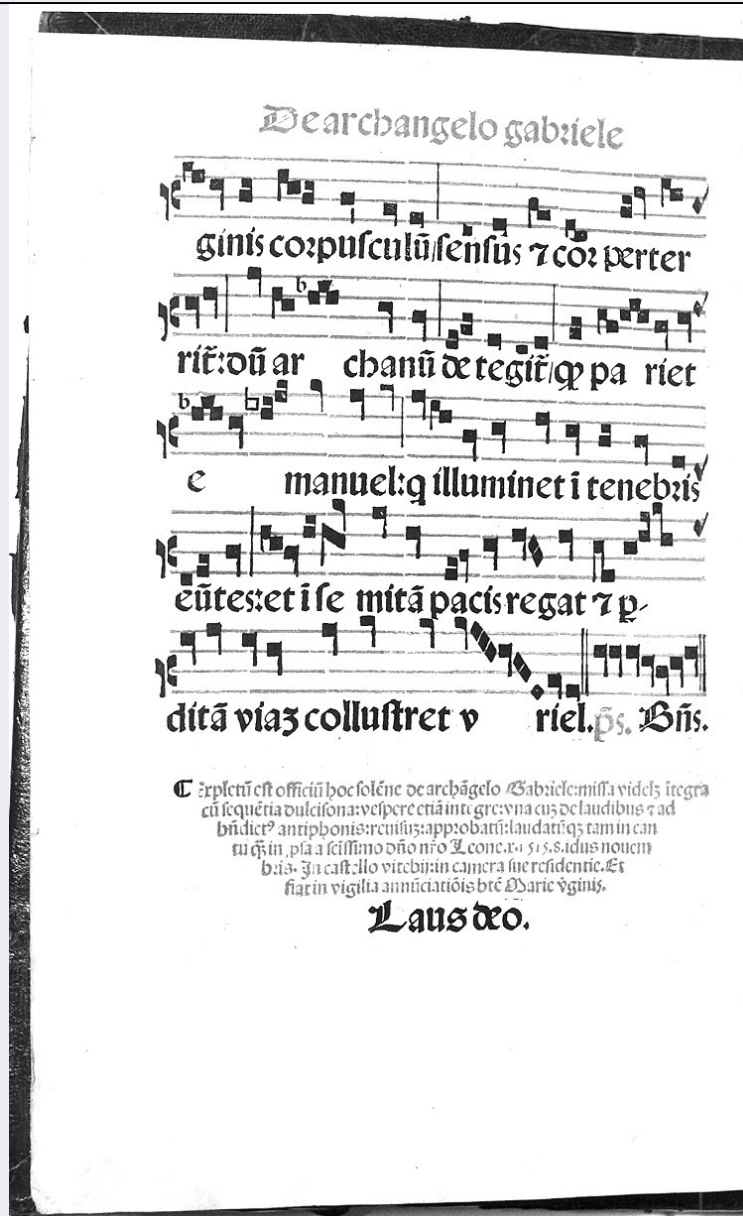 De archangelo gabꝛiele
ginis coꝛpuſculū/ſenſus ⁊ coꝛ perter
rit̃:dū ar chanū de tegit̃/ꝙ pa riet
e manuel:q illuminet ī tenebꝛis
eūtes:et ī ſe mitā pacis regat ⁊ ꝑ-
ditā viaʒ colluſtret v riel. p̄s. Bn̄s.
Expletū eſt officiū hoc ſolēne de archāgelo Gabꝛiele:miſſa videlʒ ītegra
cū ſequētia dulciſona:veſpere etiā integre:vna cuʒ de laudibus ⁊ ad
bn̄dictꝰ antiphonis:reuiſuʒ:appꝛobatū:laudatūqʒ tam in can
tu ꝗ̄ in ꝓſa a ſciſſimo dn̄o nr̄o Leone.x. 1515.8.idus nouem
bꝛis. In caſtello vitebij:in camera ſue reſidentie. Et
fiat in vigilia annūciatiōis btē Marie v̄ginis.
Laus deo.